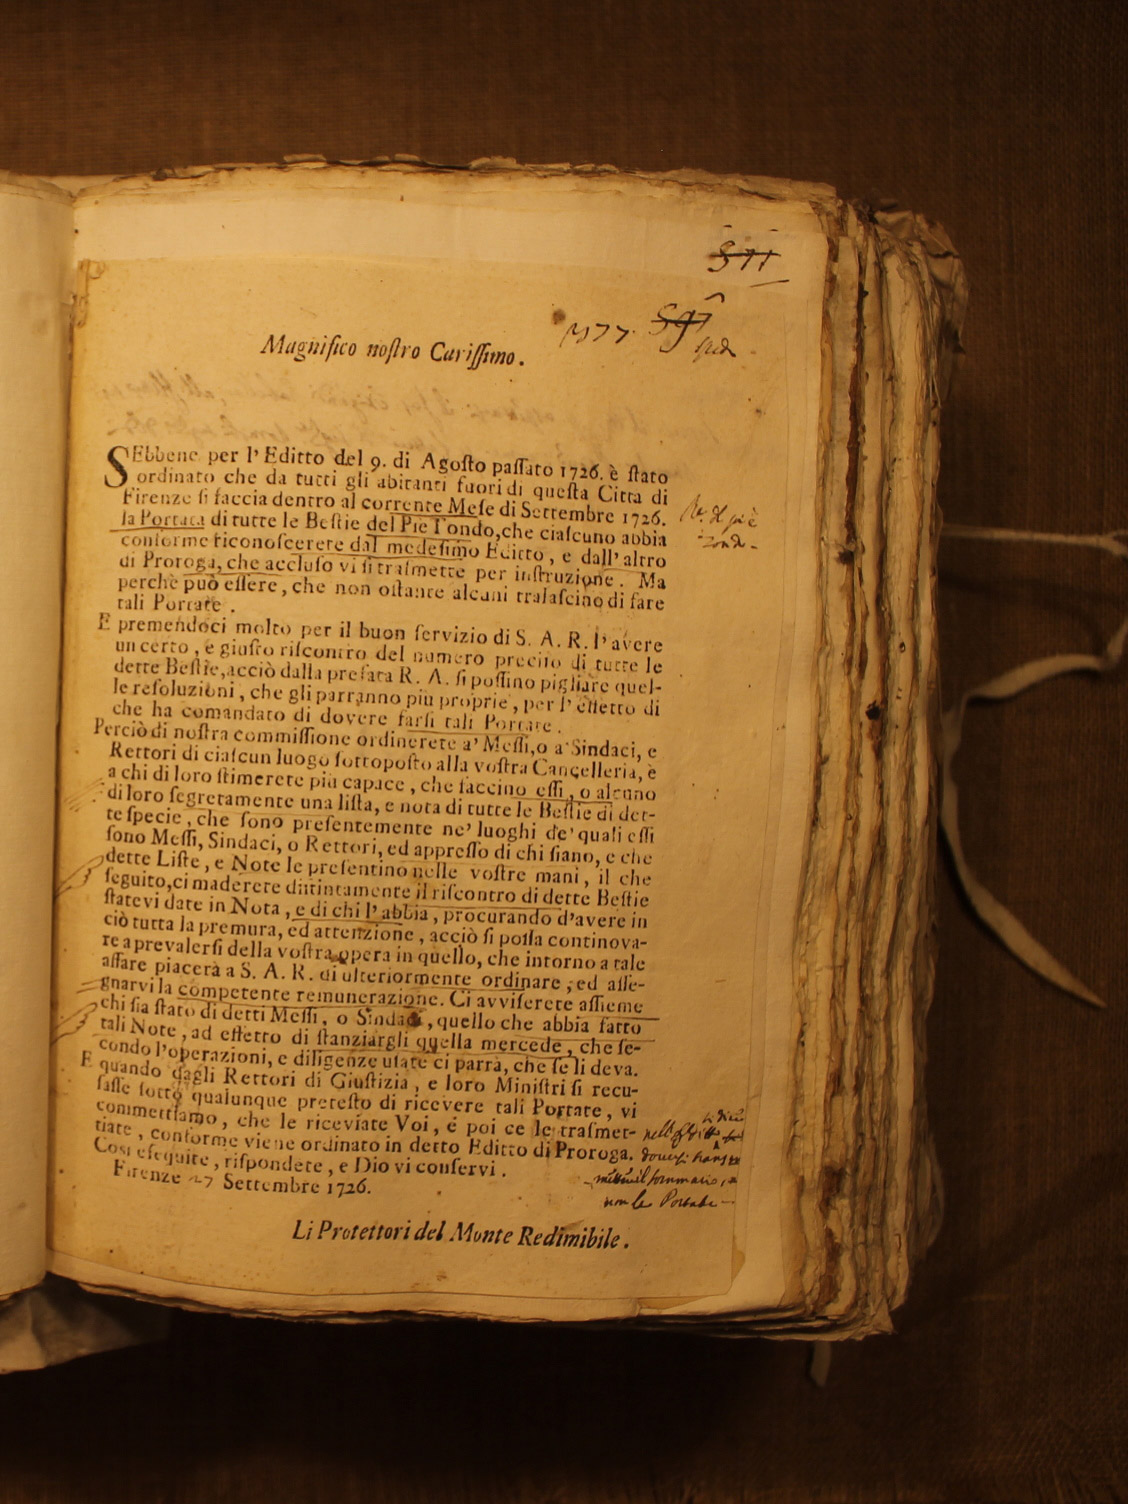 511
1377. 597
Magnifico nostro Carissimo.
SEbbene per l' Editto del 9. di Agosto passato 1726. è stato
ordinato che da tutti gli abitanti fuori di questa Città di
Firenze si faccia dentro al corrente Mese di Settembre 1726.
la Portata di tutte le Bestie del Piè Tondo, che ciascuno abbia
conforme riconoscerete dal medesimo Editto, e dall' altro
di Proroga, che accluso vi si trasmette per instruzione. Ma
perchè può essere, che non ostante alcuni tralascino di fare
tali Portate.
E premendoci molto per il buon servizio di S. A. R. l' avere
un certo, e giusto riscontro del numero preciso di tutte le
dette Bestie, acciò dalla prefata R. A. si possino pigliare quel-
le resoluzioni, che gli parranno più proprie, per l' effetto di
che ha comandato di dovere farsi tali Portate.
Perciò di nostra commissione ordinerete a' Messi, o a' Sindaci, e
Rettori di ciascun luogo sottoposto alla vostra Cancelleria, è
a chi di loro stimerete più capace, che faccino essi, o alcuno
di loro segretamente una lista, e nota di tutte le Bestie di det-
te specie, che sono presentemente ne' luoghi de' quali essi
sono Messi, Sindaci, o Rettori, ed appresso di chi siano, e che
dette Liste, e Note le presentino nelle vostre mani, il che
seguito, ci manderete distintamente il riscontro di dette Bestie
statevi date in Nota, e di chi l' abbia, procurando d'avere in
ciò tutta la premura, ed attenzione, acciò si possa continova-
re a prevalersi della vostra opera in quello, che intorno a tale
affare piacerà a S. A. R. di ulteriormente ordinare, ed asse-
gnarvi la competente remunerazione. Ci avviserete assieme
chi sia stato di detti Messi, o Sindaci, quello che abbia fatto
tali Note, ad effetto di stanziargli quella mercede, che se-
condo l'operazioni, e diligenze usate ci parrà, che se li deva.
E quando dagli Rettori di Giustizia, e loro Ministri si recu-
sasse sotto qualunque pretesto di ricevere tali Portate, vi
commettiamo, che le riceviate Voi, e poi ce le trasmet-
tiate, conforme viene ordinato in detto Editto di Proroga.
Così eseguite, rispondete, e Dio vi conservi.
Firenze 27 Settembre 1726.
non le Portate
Li Protettori del Monte Redimibile.